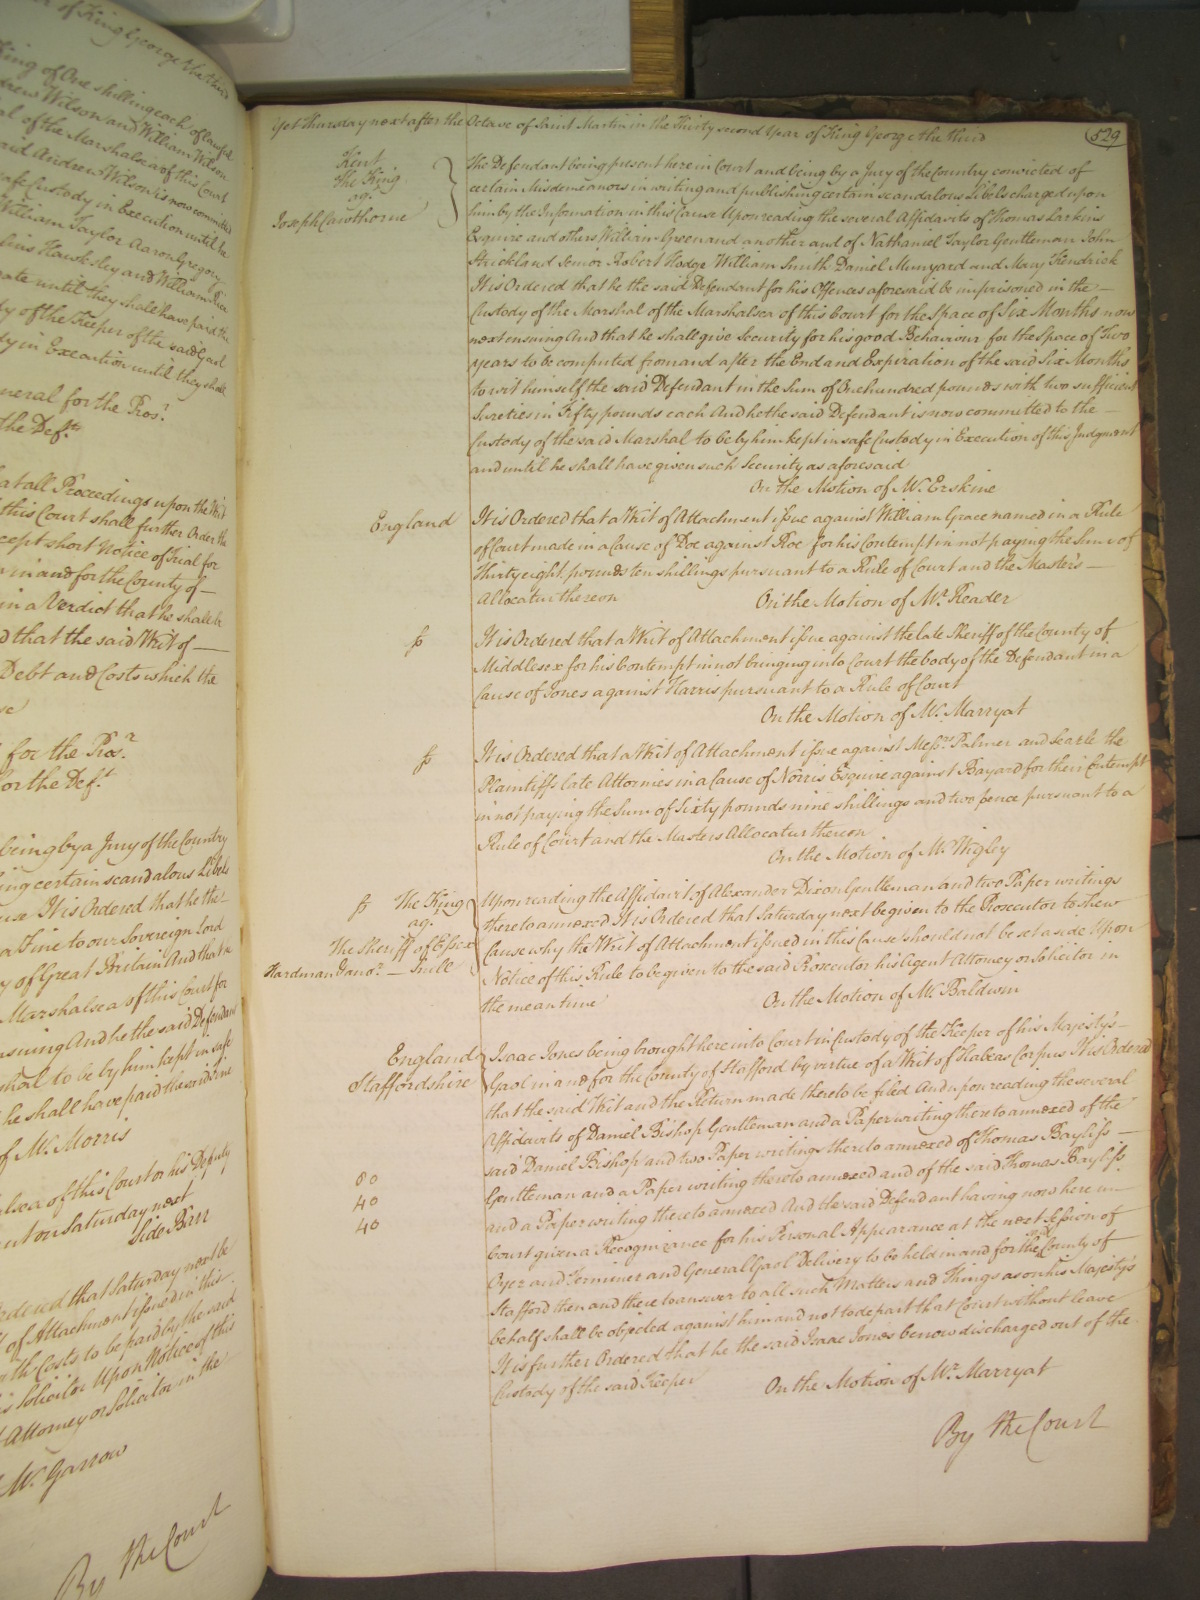 of King George the third
King of One shilling each of lawful
Andrew Wilson and William Wilson
of the Marshalsea of this Court
said Andrew Wilson is now committed
safe Custody in Execution until he
William Taylor Aaron Gregory
Hawksley and William
until they shall have paid the
of the Keeper of the said Gaol
in Execution until they shall
for the Pros.r
the Def.ts
at all Proceedings upon the Writ
this Court shall further Order the
accept short Notice of Trial for
in and for the County of —
in a Verdict that he shall be
d that the said Writ of —
Debt and Costs which the
for the Pros.r
for the Def.t
being by a Jury of the Country
certain scandalous Libels
It is Ordered that he the
a Fine to our Sovereign Lord
of Great Britain And that he
Marshalsea of this Court for
ensuing And he the said Defendant
to be by him kept in safe
he shall have paid the said Fine
of Mr. Morris
of this Court or his Deputy
on Saturday next
Side Barr
Ordered that Saturday next be
of Attachment issued in this
with Costs to be paid by the said
Solicitor Upon Notice of this
Attorney or Solicitor in the
Mr. Garrow
By the Court
Yet Thursday next after the Octave of Saint Martin in the Thirty second Year of King George the third
529
Kent
The King
ag.
Joseph Cawthorne
The Defendant being present here in Court and being by a Jury of the Country convicted of
certain Misdemeanors in writing and publishing certain scandalous Libels charged upon
him by the Information in this Cause Upon reading the several Affidavits of Thomas Larkins
Esquire and others William Green and another and of Nathaniel Taylor Gentleman John
Strickland Senior Robert Hodge William Smith Daniel Munyard and Mary Kendrick
It is Ordered that he the said Defendant for his Offences aforesaid be imprisoned in the —
Custody of the Marshal of the Marshalsea of this Court for the Space of Six Months now
next ensuing And that he shall give Security for his good Behaviour for the Space of Two
years to be computed from and after the End and Expiration of the said Six Months
to wit himself the said Defendant in the Sum of One hundred pounds with two sufficient
Sureties in Fifty pounds each And he the said Defendant is now committed to the —
Custody of the said Marshal to be by him kept in safe Custody in Execution of this Judgment
and until he shall have given such Security as aforesaid
On the Motion of Mr. Erskine
England
It is Ordered that a Writ of Attachment issue against William Grace named in a Rule
of Court made in a Cause of Doe against Roe for his Contempt in not paying the Sum of
Thirty eight pounds ten shillings pursuant to a Rule of Court and the Master's —
Allocatur thereon
On the Motion of Mr. Reader
It is Ordered that a Writ of Attachment issue against the late Sheriff of the County of
Middlesex for his Contempt in not bringing into Court the body of the Defendant in a
Cause of Jones against Harris pursuant to a Rule of Court
On the Motion of Mr. Marryat
It is Ordered that a Writ of Attachment issue against Messrs. Palmer and Searle the
Plaintiffs late Attornies in a Cause of Norris Esquire against Bayard for their Contempt
in not paying the Sum of Sixty pounds nine shillings and two pence pursuant to a
Rule of Court and the Masters Allocatur thereon
On the Motion of Mr. Wigley
The King
ag.
The Sheriff of Essex
Hardman
Upon reading the Affidavit of Alexander Dixon Gentleman and two Paper writings
thereto annexed It is Ordered that Saturday next be given to the Prosecutor to shew
Cause why the Writ of Attachment issued in this Cause should not be set aside Upon
Notice of this Rule to be given to the said Prosecutor his Agent Attorney or Solicitor in
the mean time
On the Motion of Mr. Baldwin
England
Staffordshire
80
40
40
Isaac Jones being brought here into Court in Custody of the Keeper of his Majesty's —
Gaol in and for the County of Stafford by virtue of a Writ of Habeas Corpus It is Ordered
that the said Writ and the Return made thereto be filed And upon reading the several
Affidavits of Daniel Bishop Gentleman and a Paper writing thereto annexed of the
said Daniel Bishop and two Paper writings thereto annexed of Thomas Bayliss —
Gentleman and a Paper writing thereto annexed and of the said Thomas Bayliss
and a Paper writing thereto annexed And the said Defendant having now here in —
Court given a Recognizance for his Personal Appearance at the next Session of
Oyer and Terminer and General Gaol Delivery to be held in and for the said County of
Stafford then and there to answer to all such Matters and Things as on his Majesty's
behalf shall be objected against him and not to depart that Court without leave
It is further Ordered that he the said Isaac Jones be now discharged out of the
Custody of the said Keeper
On the Motion of Mr. Marryat
By the Court